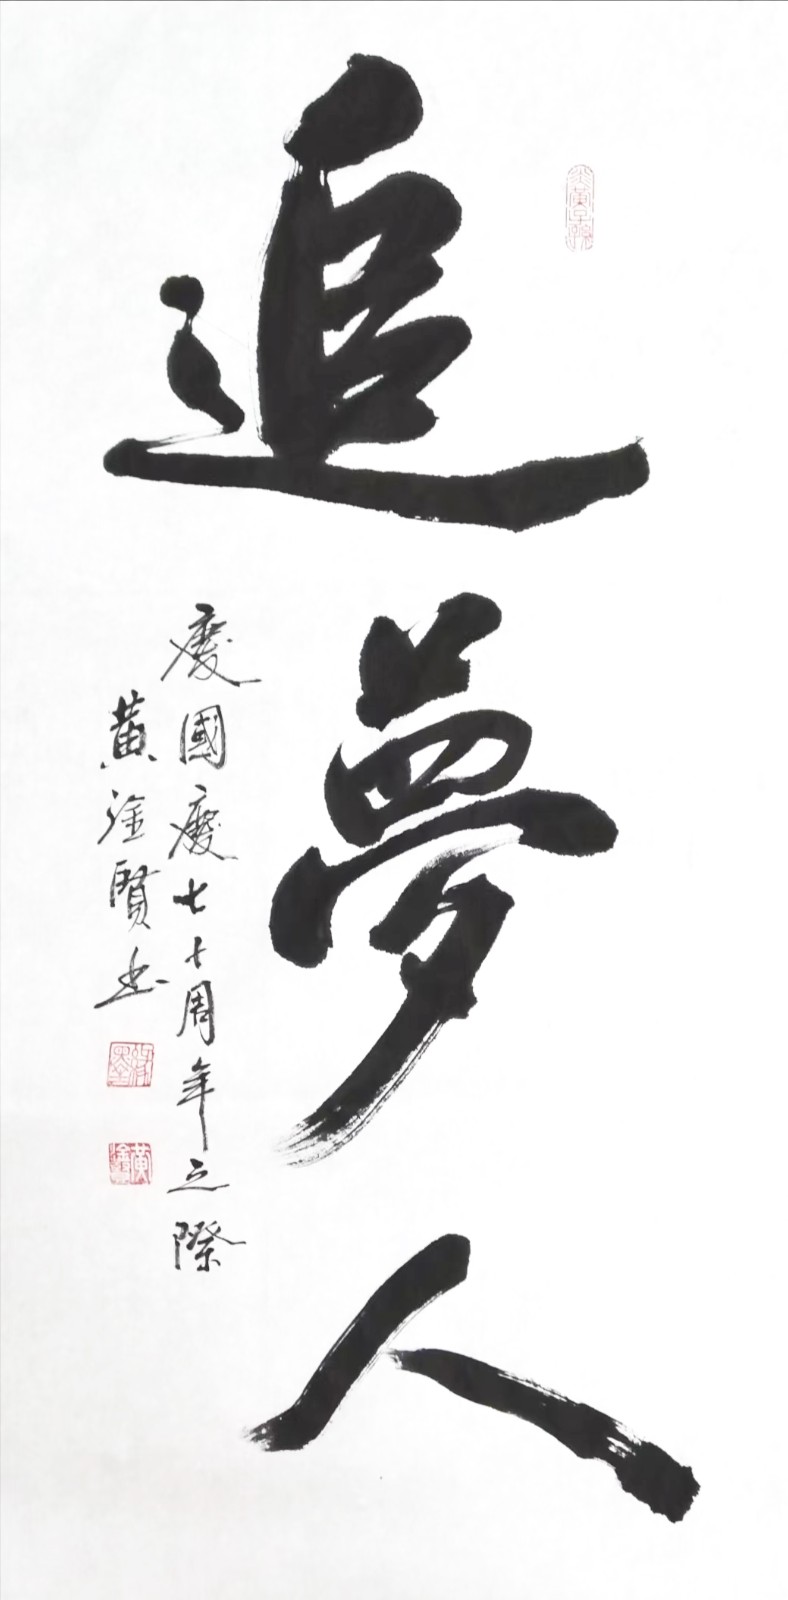 追夢人
慶國慶七十周年之際
黃淦賢书